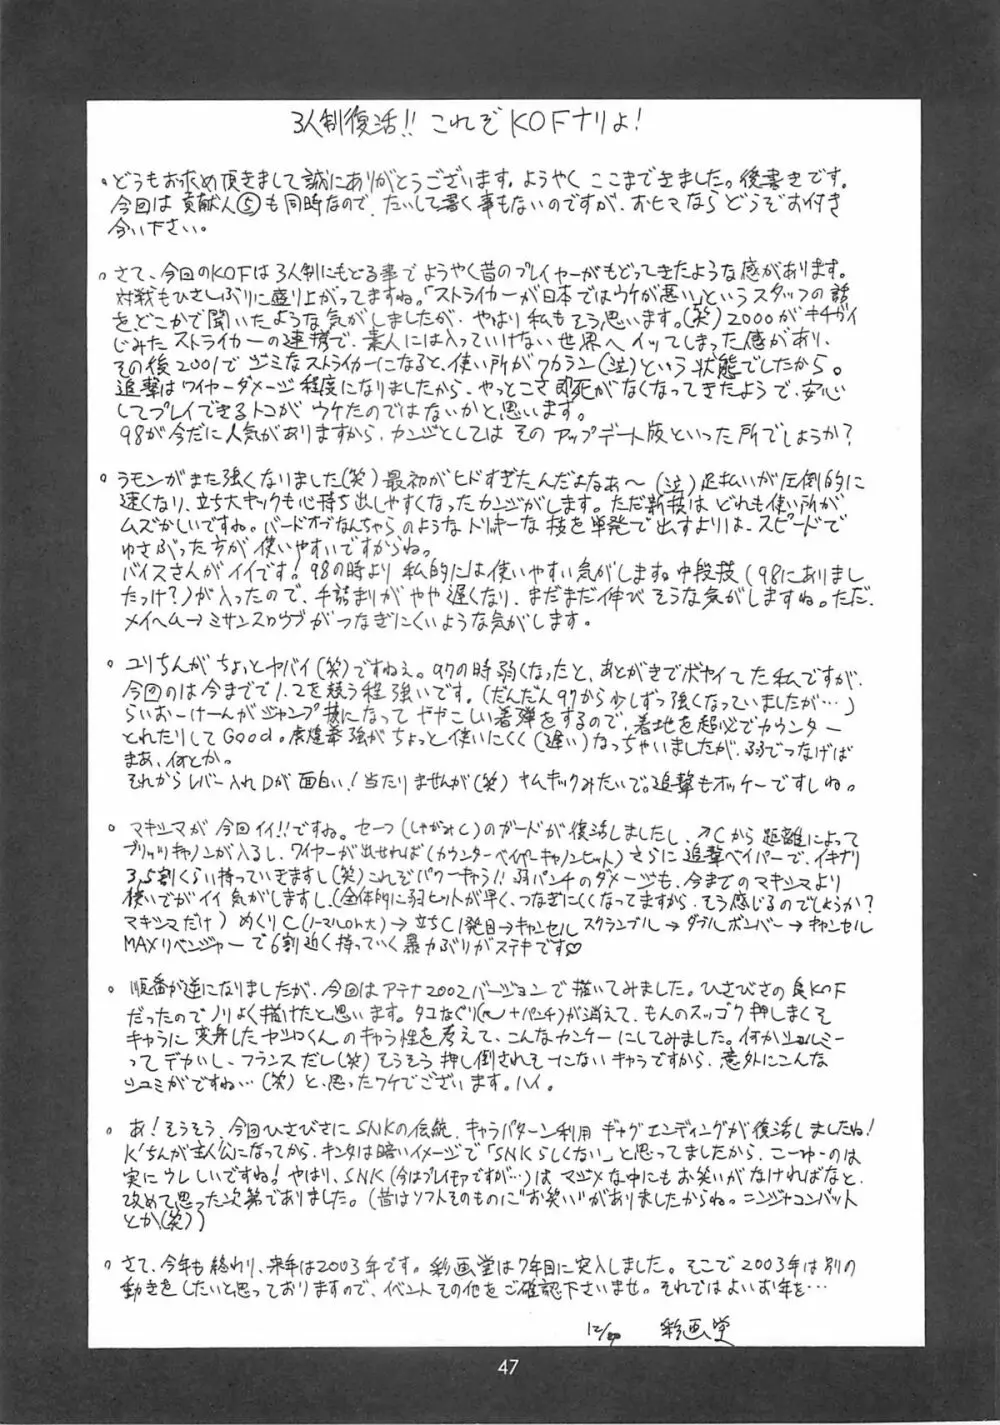 3人制復活!! これぞKOFナリよ!
・どうもお求め頂きまして誠にありがとうございます。ようやくここまできました。後書きです。
今回は貢献人⑤も同時なので、たいして書く事もないのですが、おヒマならどうぞお付き
合い下さい。
・さて、今回のKOFは3人制にもどる事でようやく昔のプレイヤーがもどってきたような感があります。
対戦もひさしぶりに盛り上がってますね。「ストライカーが日本ではウケが悪い」というスタッフの話
を、どこかで聞いたような気がしましたが、やはり私もそう思います。(笑)2000がキチガイ
じみたストライカーの連携で、素人には入っていけない世界へイッてしまった感があり、
その後2001でジミなストライカーになると、使い所がワカラン(泣)という状態でしたから。
追撃はワイヤーダメージ程度になりましたから、やっとこさ即死がなくなってきたようで、安心
してプレイできるトコがウケたのではないかと思います。
98が今だに人気がありますから、カンジとしてはそのアップデート版といった所でしょうか?
・ラモンがまた強くなりました(笑)最初がヒドすぎたんだよなぁ〜(泣)足払いが圧倒的に
速くなり、立ち大キックも心持ち出しやすくなったカンジがします。ただ新技はどれも使い所が
ムズかしいですね。バードオブなんちゃらのようなトリッキーな技を単発で出すよりは、スピードで
ゆさぶった方が使いやすいですからね。
バイスさんがイイです!98の時より私的には使いやすい気がします。中段技(98にありまし
たっけ?)が入ったので、手詰まりがやや遅くなり、まだまだ伸びそうな気がしますね。ただ、
メイヘム→ミサンスロウプがつなぎにくいような気がします。
・ユリちんがちょっとヤバイ(笑)ですねぇ。97の時弱くなったと、あとがきでボヤイてた私ですが、
今回のは今までで1.2を競う程強いです。(だんだん97から少しずつ強くなっていましたが…)
らいおーけーんがジャンプ技になってややこしい着弾をするので、着地を超必でカウンター
とれたりしてGood。虎煌拳強がちょっと使いにくく(遅い)なっちゃいましたが、弱でつなげば
まあ、何とか。
それからレバー入れDが面白い!当たりませんが(笑)ナムキックみたいで。追撃もオッケーですしね。
・マキシマが今回イイ!!ですね。せーつ(しゃがみC)のガードが復活しましたし、↗Cから距離によって
ブリッツキャノンが入るし、ワイヤーが出せれば(カウンターベイパーキャノンヒット)さらに追撃ベイパーで、イキナリ
3,5割くらい持っていきますし(笑)これぞパワーキャラ!!弱パンチのダメージも、今までのマキシマより
使いでがイイ気がしますし、(全体的に弱ヒットが早く、つなぎにくくなってますから、そう感じるのでしょうか?
マキシマだけ)めくりC(ノーマルorh大)→立ちC1発目→キャンセルスクランブル→ダブルボンバー→キャンセル
MAXリベンジャーで6割近く持っていく暴力ぶりがステキです♡
・順番が逆になりましたが、今回はアテナ2002バージョンで描いてみました。ひさびさの良KOF
だったのでノリよく描けたと思います。タコなぐり(+パンチ)が消えて、もんのスッゴク押しまくる
キャラに変身したヤシロくんのキャラ性を考えて、こんなカンケーにしてみました。何かシェルミー
ってデカいし、フランスだし(笑)そうそう押し倒されそーにないキャラですから、意外にこんな
シュミがですね…(笑)と、思ったワケでございます。ハイ。
・あ!そうそう、今回ひさびさにSNKの伝統、キャラパターン利用ギャグエンディングが復活しましたね!
K'ちんが主人公になってから、キンタは暗いイメージで「SNKらしくない」と思ってましたから、こーゆーのは
実にウレしいですね!やはり、SNK(今はプレイモアですが…)はマジメな中にもお笑いがなければなと、
改めて思った次第でありました。(昔はソフトそのものに"お笑い"がありましたからね。ニンジャコンバット
とか(笑))
・さて、今年も終わり、来年は2003年です。彩画堂は7年目に突入しました。そこで2003年は別の
動きをしたいと思っておりますので、イベントその他をご確認下さいませ。それではよいお年を…
12/ 彩画堂
47